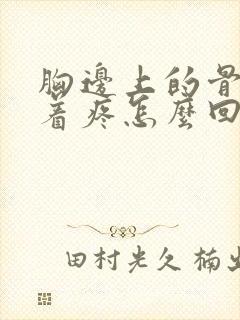 胸邊上的骨
着疼怎麼回
田村光久 楠